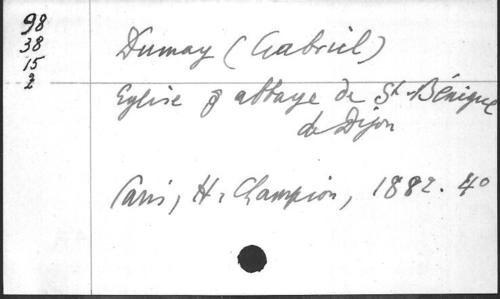 98
38
15
2
Dumay (Gabriel)
Eglise & abbaye de St-Bénigne
de Dijon
Paris, H. Champion, 1882. 4°